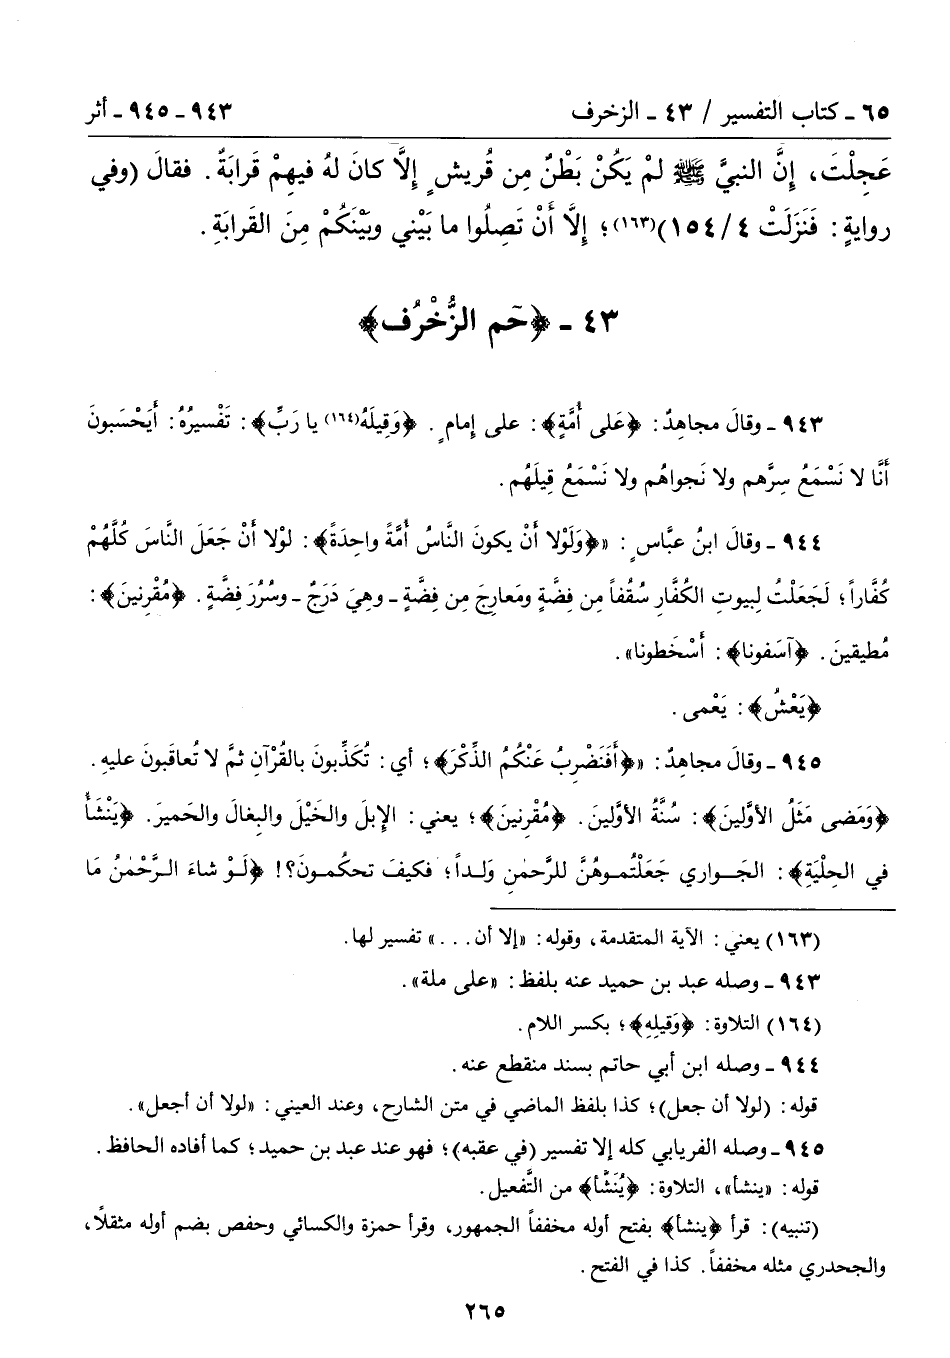 ٦٥ ـ كتاب التفسير / ٤٣ ـ الزخرف
٩٤٣ ـ ٩٤٥ ـ أثر
عَجِلْتَ، إِنَّ النبيَّ ﷺ لمْ يَكُنْ بَطْنٌ مِن قُريشٍ إِلَّا كانَ لهُ فيهِمْ قَرابَةٌ. فقالَ (وفي
روايةٍ: فَنَزَلَتْ ٤/ ١٥٤)(١٦٣)؛ إِلَّا أَنْ تَصِلُوا ما بَيْني وبَيْنَكُمْ مِنَ القَرابَةِ.
٤٣ ـ ﴿حَم الزُّخْرُف﴾
٩٤٣ ـ وقالَ مجاهِدٌ: ﴿عَلى أُمَّةٍ﴾: على إمامٍ. ﴿وَقِيلَهُ(١٦٤) يا رَبِّ﴾: تَفْسيرُهُ: أَيَحْسَبونَ
أَنَّا لا نَسْمَعُ سِرَّهم ولا نَجواهُم ولا نَسْمَعُ قِيلَهُم.
٩٤٤ ـ وقالَ ابنُ عبَّاسٍ: «﴿وَلَوْلا أَنْ يكونَ النَّاسُ أُمَّةً واحِدَةً﴾: لوْلا أَنْ جَعَلَ النَّاسَ كُلَّهُمْ
كُفَّاراً؛ لَجَعَلْتُ لِبيوتِ الكُفَّارِ سُقُفاً مِن فِضَّةٍ ومَعارِجَ مِن فِضَّةٍ ـ وهِيَ دَرَجٌ ـ وسُرُرَ فِضَّةٍ. ﴿مُقْرِنينَ﴾:
مُطيقينَ. ﴿آسَفونا﴾: أَسْخَطونا».
﴿يَعْشُ﴾: يَعْمى.
٩٤٥ ـ وقالَ مجاهِدٌ: «﴿أَفَنَضْرِبُ عَنْكُمُ الذِّكْرَ﴾؛ أي: تُكَذِّبونَ بالقُرْآنِ ثمَّ لا تُعاقَبونَ عليهِ.
﴿وَمَضى مَثَلُ الأوَّلينَ﴾: سُنَّةُ الأوَّلينَ. ﴿مُقْرِنينَ﴾؛ يعني: الإِبلَ والخَيْلَ والبِغالَ والحَميرَ. ﴿يَنْشَأُ
في الحِلْيَةِ﴾: الجَواري جَعَلْتُموهُنَّ للرَّحمٰنِ وَلداً؛ فكيفَ تحكُمونَ؟! ﴿لَوْ شاءَ الرَّحْمٰنُ مَا
(١٦٣) يعني: الآية المتقدمة، وقوله: «إلا أن . . .» تفسير لها.
٩٤٣ ـ وصله عبد بن حميد عنه بلفظ: «على ملة».
(١٦٤) التلاوة: ﴿وَقيلِهِ﴾؛ بكسر اللام.
٩٤٤ ـ وصله ابن أبي حاتم بسند منقطع عنه.
قوله: (لولا أن جعل)؛ كذا بلفظ الماضي في متن الشارح، وعند العيني: «لولا أن أجعل».
٩٤٥ ـ وصله الفريابي كله إلا تفسير (في عقبه)؛ فهو عند عبد بن حميد؛ كما أفاده الحافظ.
قوله: «ينشأ»، التلاوة: ﴿يُنَشَّأ﴾ من التَّفعيل.
(تنبيه): قرأ ﴿ينشأ﴾ بفتح أوله مخففاً الجمهور، وقرأ حمزة والكسائي وحفص بضم أوله مثقلاً،
والجحدري مثله مخففاً. كذا في الفتح.
٢٦٥